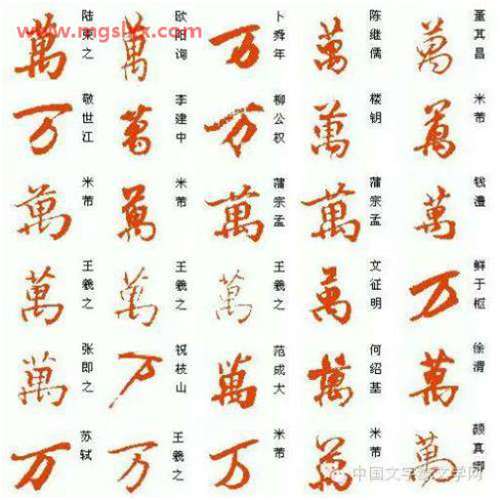 www.mgslyx.com
萬 陆柬之 萬 欧阳询 万 卜舜年 萬 陈继儒 萬 董其昌
万 敬世江 萬 李建中 万 柳公权 萬 楼钥 萬 米芾
萬 米芾 萬 米芾 萬 蒲宗孟 萬 蒲宗孟 萬 钱澧
萬 王羲之 萬 王羲之 萬 王羲之 萬 文征明 万 鲜于枢
萬 张即之 万 祝枝山 萬 范成大 萬 何绍基 萬 徐渭
万 苏轼 万 王羲之 万 米芾 萬 米芾 萬 颜真卿
中国文字 文学网